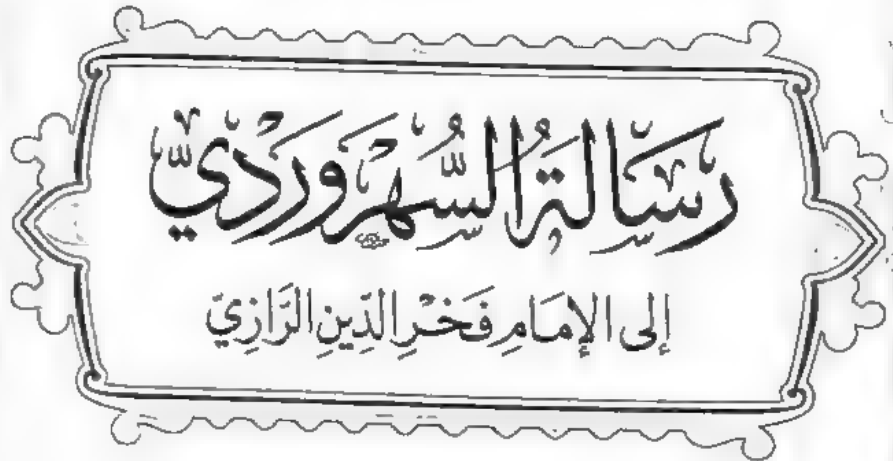 رِسَالَةُ السُّهْرَوَرْدِيِّ
إلى الإمَامِ فَخْرِ الدِّينِ الرَّازِيّ